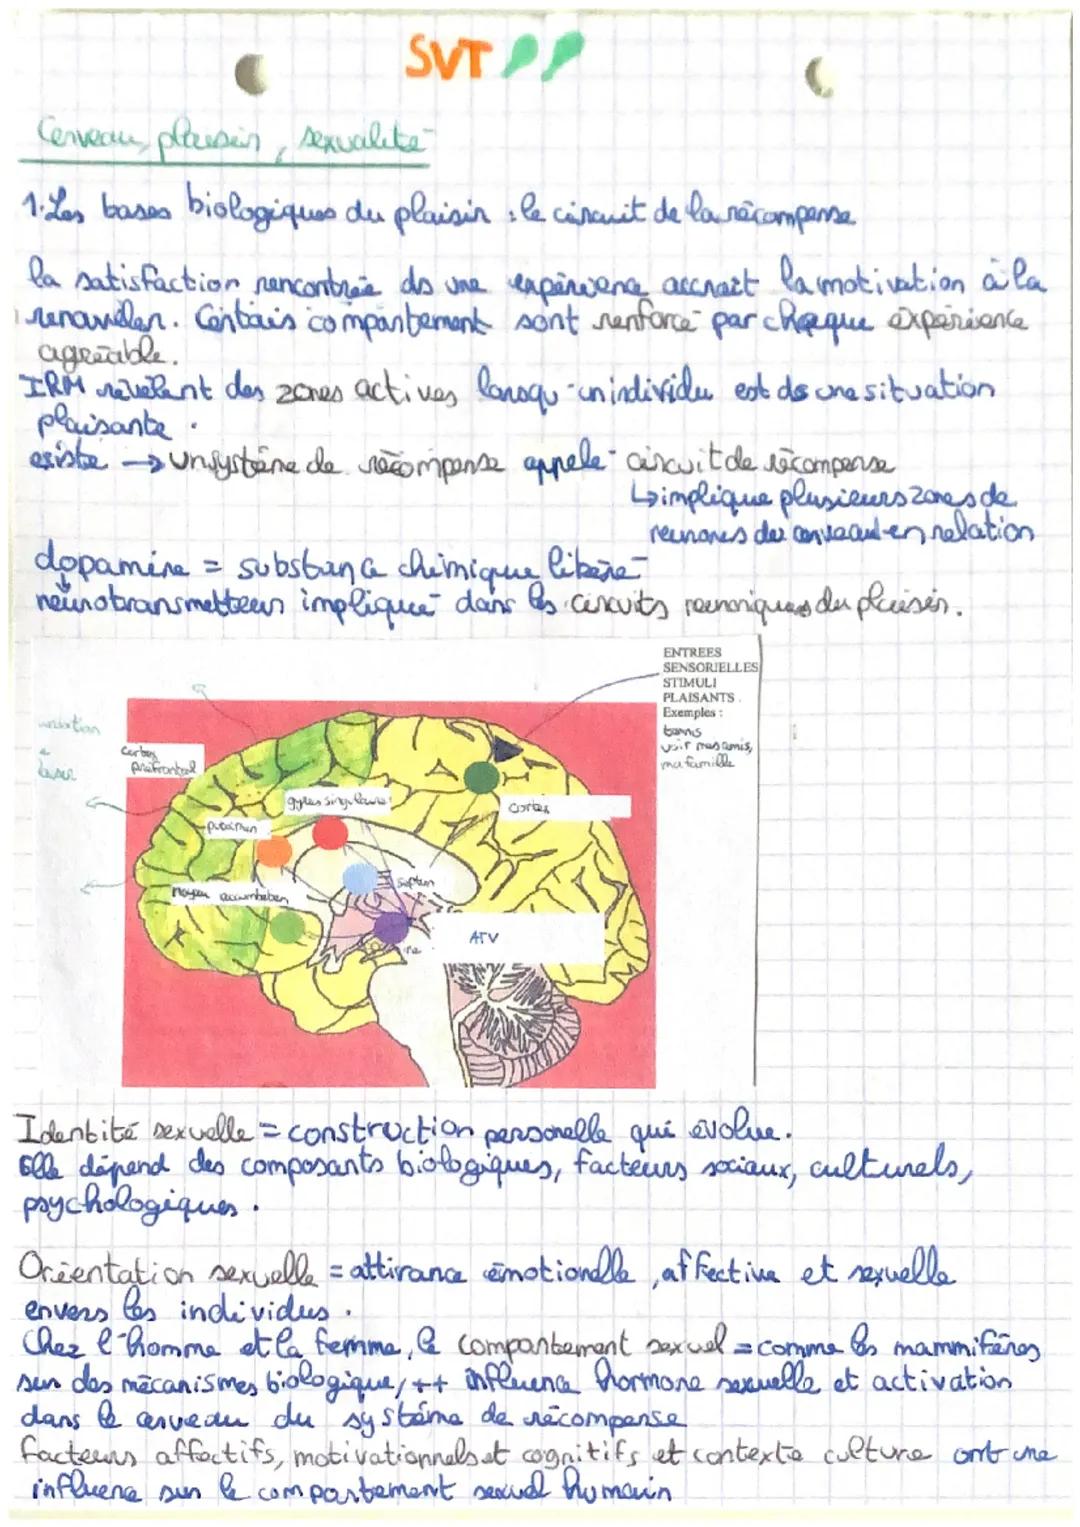 SVT
Cerveau, plaisir, sexualité
1. Les bases biologiques du plaisir : le circuit de la récompense
la satisfaction rencontrée ds une expérience accroit la motivation à la
renouveler. Certais compartement sont renforcé par chaque expérience
agréable.
IRM révèlent des zones actives lorsqu'un individu est ds une situation
plaisante.
existe → un système de récompense appelé circuit de récompense
↳ implique plusieurs zones de
neurones du cerveau en relation
dopamine = substance chimique libéré
neurotransmetteur impliqué dans les circuits neuroniques du plaisir.
ENTREES
SENSORIELLES
STIMULI
PLAISANTS.
Exemples :
tennis
voir mes amis,
ma famille
Cortex
préfrontal
gyrus singulaire
cortex
putamen
noyau accumbeben
septum
ATV
Identité sexuelle = construction personelle qui évolue.
Elle dépend des composants biologiques, facteurs sociaux, culturels,
psychologiques.
Orientation sexuelle = attirance émotionelle, affective et sexuelle
envers les individus.
Chez l'homme et la femme, le compartement sexuel = comme les mammifères
sur des mécanismes biologique, ++ influence hormone sexuelle et activation
dans le cerveau du système de récompense
facteurs affectifs, motivationnels et cognitifs et contexte culture ont une
influence sur le compartement sexuel humain